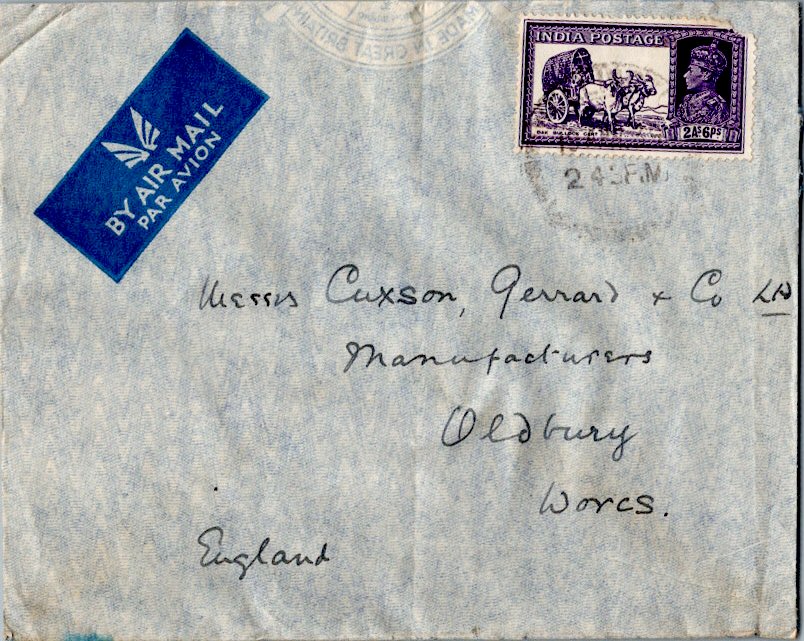 MADE IN GREAT BRITAIN
INDIA POSTAGE
DAK BULLOCK CART
2As6ps
2 43 P.M.
BY AIR MAIL
PAR AVION
Messrs Cuxson, Gerrard & Co Ld
Manufacturers
Oldbury
Worcs.
England